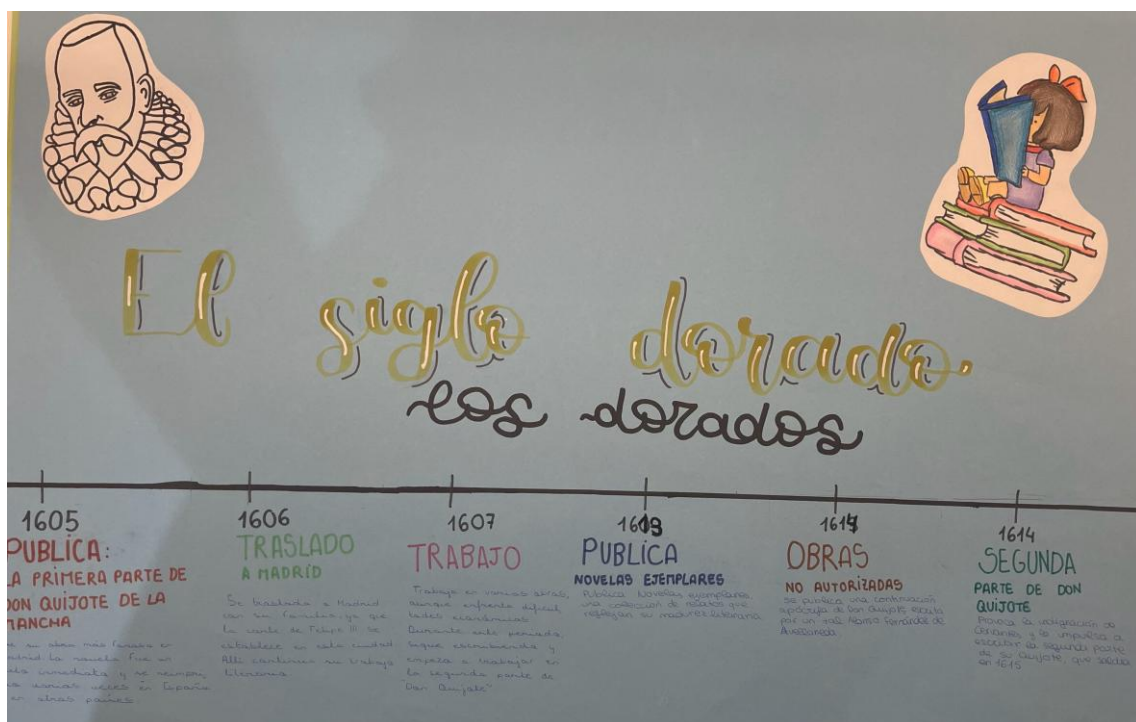 El siglo dorado.
los dorados
1605
PUBLICA:
LA PRIMERA PARTE DE
DON QUIJOTE DE LA
MANCHA
su obra más famosa en
Madrid la novela. Fue un
inmediato y se
varias veces en España
en otros países
1606
TRASLADO
A MADRID
Se traslada a Madrid
con su familia, ya que
la corte de Felipe III se
establece en esta ciudad
Allí continúa su trabajo
literario.
1607
TRABAJO
Trabaja en varias obras,
aunque enfrenta dificul
tades económicas
Durante este periodo,
sigue escribiendo y
empieza a trabajar en
la segunda parte de
"Don Quijote"
1613
PUBLICA
NOVELAS EJEMPLARES
Publica Novelas ejemplares
una colección de relatos que
reflejan su madurez literaria
1614
OBRAS
NO AUTORIZADAS
Se publica una continuación
apócrifa de Don Quijote, escrita
por un tal Alonso Fernández de
Avellaneda
1614
SEGUNDA
PARTE DE DON
QUIJOTE
Provoca la indignación de
Cervantes y lo impulsa a
escribir la segunda parte
de su Quijote, que saldría
en 1615